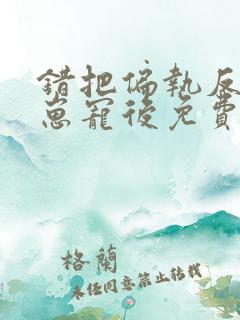 錯把偏執反
崽寵後免費
格蘭
未任同意禁止轉載